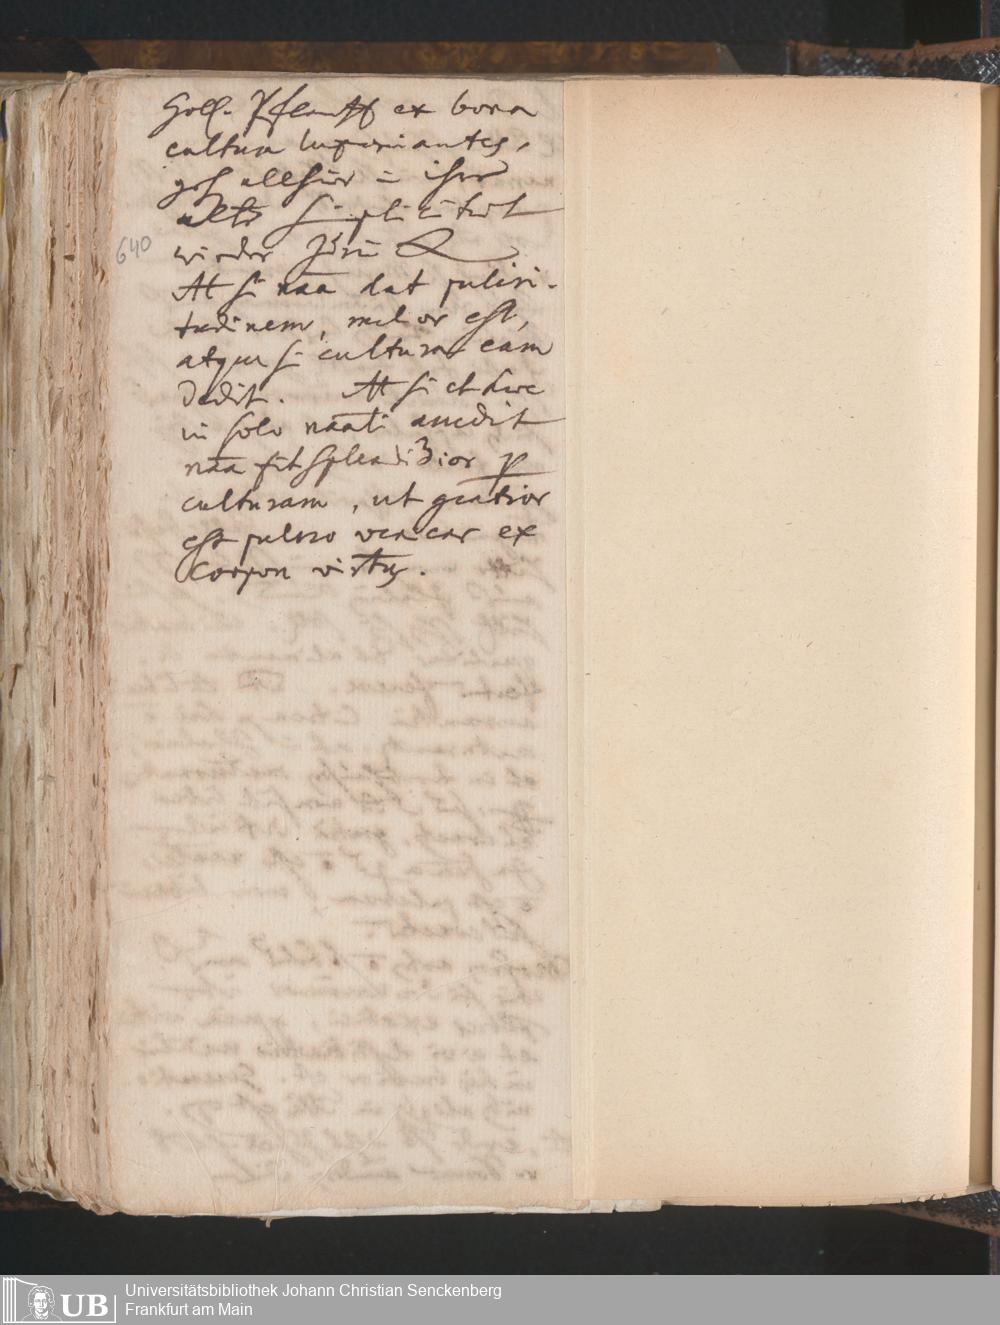 Holl. Pflantz ex bona
cultura luxuriantes,
geh allhier in ihre
alte simplicität
wieder
640
At si naa dat pulcri-
tudinem, melior est,
atque si cultura eam
dedit. At si et haec
in solo naali accedit
naa fit splendidior p
culturam, ut gratior
est pulcro veniens ex
corpore virtus.
Universitätsbibliothek Johann Christian Senckenberg
Frankfurt am Main
UB